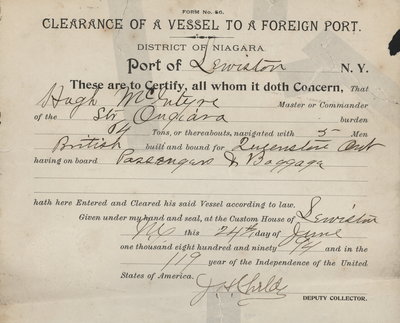 FORM No. 50.
CLEARANCE OF A VESSEL TO A FOREIGN PORT.
DISTRICT OF NIAGARA.
Port of Lewiston N. Y.
These are to Certify, all whom it doth Concern, That
Hugh McIntyre Master or Commander
of the Str Ongiara burden
94 Tons, or thereabouts, navigated with 5 Men
British built and bound for Queenston Ont
having on board Passengers & Baggage
hath here Entered and Cleared his said Vessel according to law.
Given under my hand and seal, at the Custom House of Lewiston
this 24th day of June
one thousand eight hundred and ninety 94 and in the
119 year of the Independence of the United
States of America.
DEPUTY COLLECTOR.